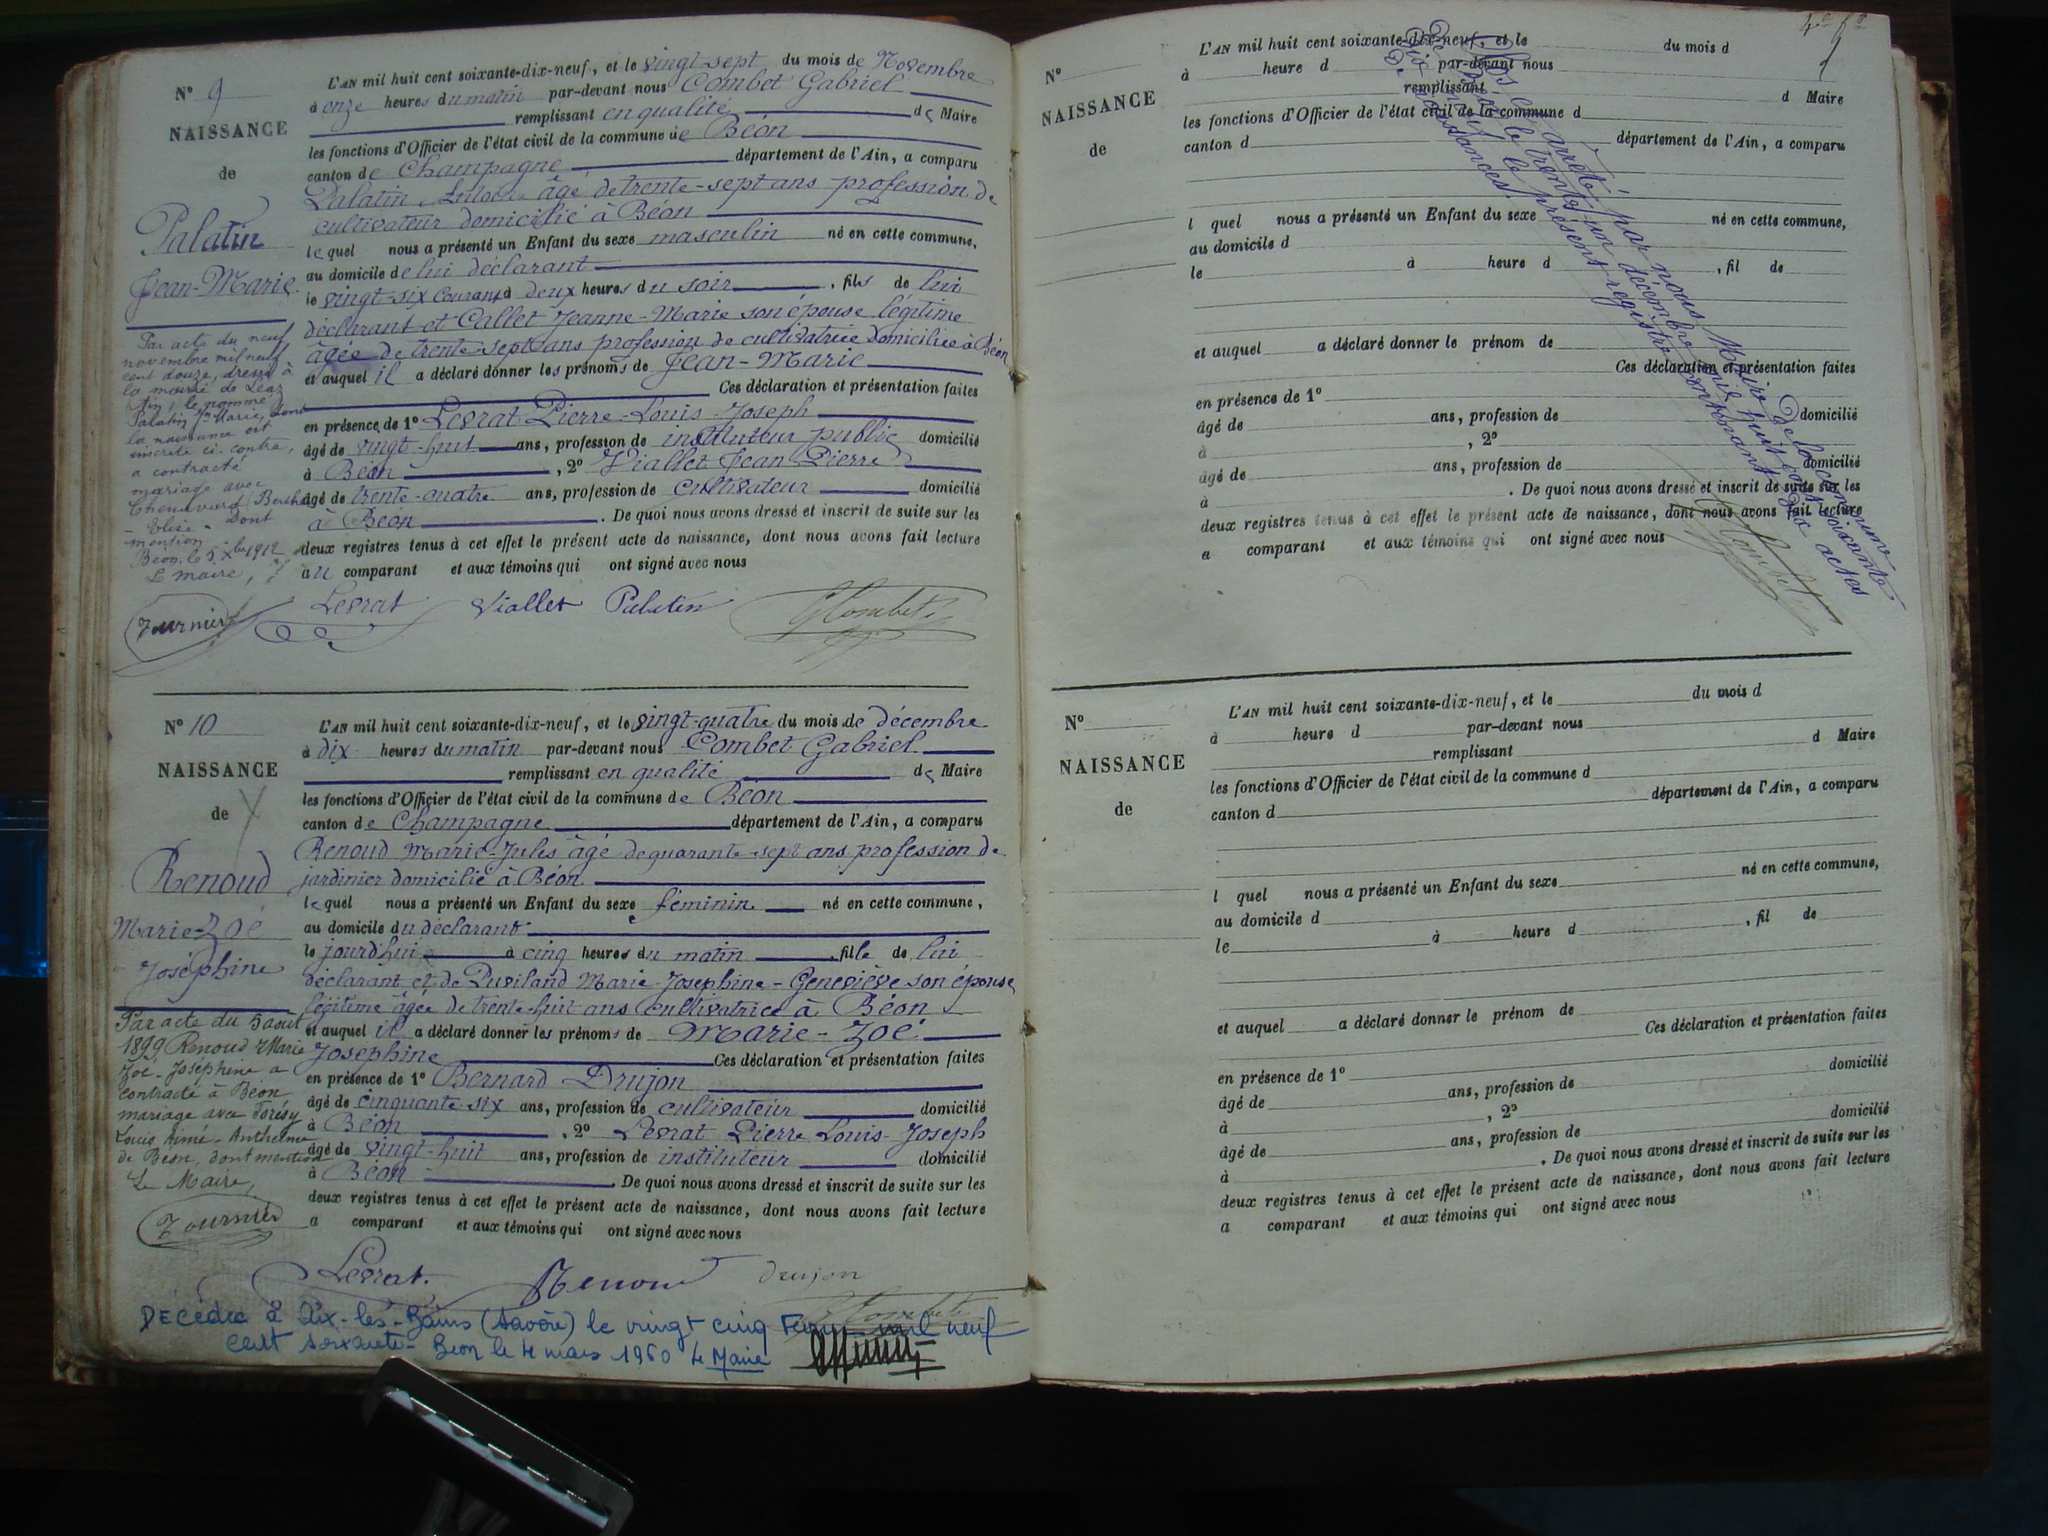 N° 9
NAISSANCE
de
Palatin
Jean-Marie
Par acte du neuf
novembre mil neuf
cent douze, dressé à
la mairie de Léaz
Ain, le nommé
Palatin Jn Marie, dont
la naissance est
inscrite ci-contre,
a contracté
mariage avec
Chenavard Berthe
dont
mention
Béon, le 5 Xbre 1912
Le maire,
Fournier
L'AN mil huit cent soixante-dix-neuf, et le vingt-sept du mois de Novembre
à onze heures du matin par-devant nous Combet Gabriel
remplissant en qualité de Maire
les fonctions d'Officier de l'état civil de la commune de Béon
canton de Champagne département de l'Ain, a comparu
Palatin âgé de trente-sept ans profession de
cultivateur domicilié à Béon
lequel nous a présenté un Enfant du sexe masculin né en cette commune,
au domicile de lui déclarant
le vingt-six courant à deux heures du soir , fils de lui
déclarant et Callet Jeanne-Marie son épouse légitime
âgée de trente-sept ans profession de cultivatrice domiciliée à Béon
et auquel il a déclaré donner les prénoms de Jean-Marie
Ces déclaration et présentation faites
en présence de 1° Levrat Pierre-Louis-Joseph
âgé de vingt-huit ans, profession de instituteur public domicilié
à Béon , 2° Viallet Jean Pierre
âgé de trente-quatre ans, profession de cultivateur domicilié
à Béon . De quoi nous avons dressé et inscrit de suite sur les
deux registres tenus à cet effet le présent acte de naissance, dont nous avons fait lecture
au comparant et aux témoins qui ont signé avec nous
Levrat Viallet Palatin Combet
N° 10
NAISSANCE
de
Renoud
Marie-Zoé
Joséphine
Par acte du 5 août
1899, Renoud Marie
Zoé-Joséphine a
contracté à Béon
mariage avec
Louis Aimé-Anthelme
de Béon, dont mention
Le Maire,
Fournier
L'AN mil huit cent soixante-dix-neuf, et le vingt-quatre du mois de décembre
à dix heures du matin par-devant nous Combet Gabriel
remplissant en qualité de Maire
les fonctions d'Officier de l'état civil de la commune de Béon
canton de Champagne département de l'Ain, a comparu
Renoud Marie-Jules âgé de quarante-sept ans profession de
jardinier domicilié à Béon
lequel nous a présenté un Enfant du sexe féminin né en cette commune,
au domicile du déclarant
le jourd'hui à cinq heures du matin , fille de lui
déclarant et de Puviland Marie-Josephine-Geneviève son épouse
légitime âgée de trente-huit ans cultivatrice à Béon
et auquel il a déclaré donner les prénoms de Marie-Zoé
Josephine Ces déclaration et présentation faites
en présence de 1° Bernard Drujon
âgé de cinquante-six ans, profession de cultivateur domicilié
à Béon , 2° Levrat Pierre Louis-Joseph
âgé de vingt-huit ans, profession de instituteur domicilié
à Béon . De quoi nous avons dressé et inscrit de suite sur les
deux registres tenus à cet effet le présent acte de naissance, dont nous avons fait lecture
a comparant et aux témoins qui ont signé avec nous
Levrat. Renoud Drujon
Combet
Décédée à Aix-les-Bains (Savoie) le vingt cinq mil neuf
cent soixante - Béon le 4 mars 1960 Le Maire
N°
NAISSANCE
de
L'AN mil huit cent soixante-dix-neuf, et le du mois d
à heure d par-devant nous
remplissant d Maire
les fonctions d'Officier de l'état civil de la commune d
canton d département de l'Ain, a comparu
l quel nous a présenté un Enfant du sexe né en cette commune,
au domicile d
le à heure d , fil de
et auquel a déclaré donner le prénom de
Ces déclaration et présentation faites
en présence de 1°
âgé de ans, profession de domicilié
à , 2°
âgé de ans, profession de domicilié
à . De quoi nous avons dressé et inscrit de suite sur les
deux registres tenus à cet effet le présent acte de naissance, dont nous avons fait lecture
a comparant et aux témoins qui ont signé avec nous
Clos et arrêté par nous Maire de la commune
de Béon le trente-un décembre mil huit cent soixante
dix neuf le présent registre contenant dix actes
de naissances.
Combet
N°
NAISSANCE
de
L'AN mil huit cent soixante-dix-neuf, et le du mois d
à heure d par-devant nous
remplissant d Maire
les fonctions d'Officier de l'état civil de la commune d
canton d département de l'Ain, a comparu
l quel nous a présenté un Enfant du sexe né en cette commune,
au domicile d
le à heure d , fil de
et auquel a déclaré donner le prénom de
Ces déclaration et présentation faites
en présence de 1°
âgé de ans, profession de domicilié
à , 2°
âgé de ans, profession de domicilié
à . De quoi nous avons dressé et inscrit de suite sur les
deux registres tenus à cet effet le présent acte de naissance, dont nous avons fait lecture
a comparant et aux témoins qui ont signé avec nous